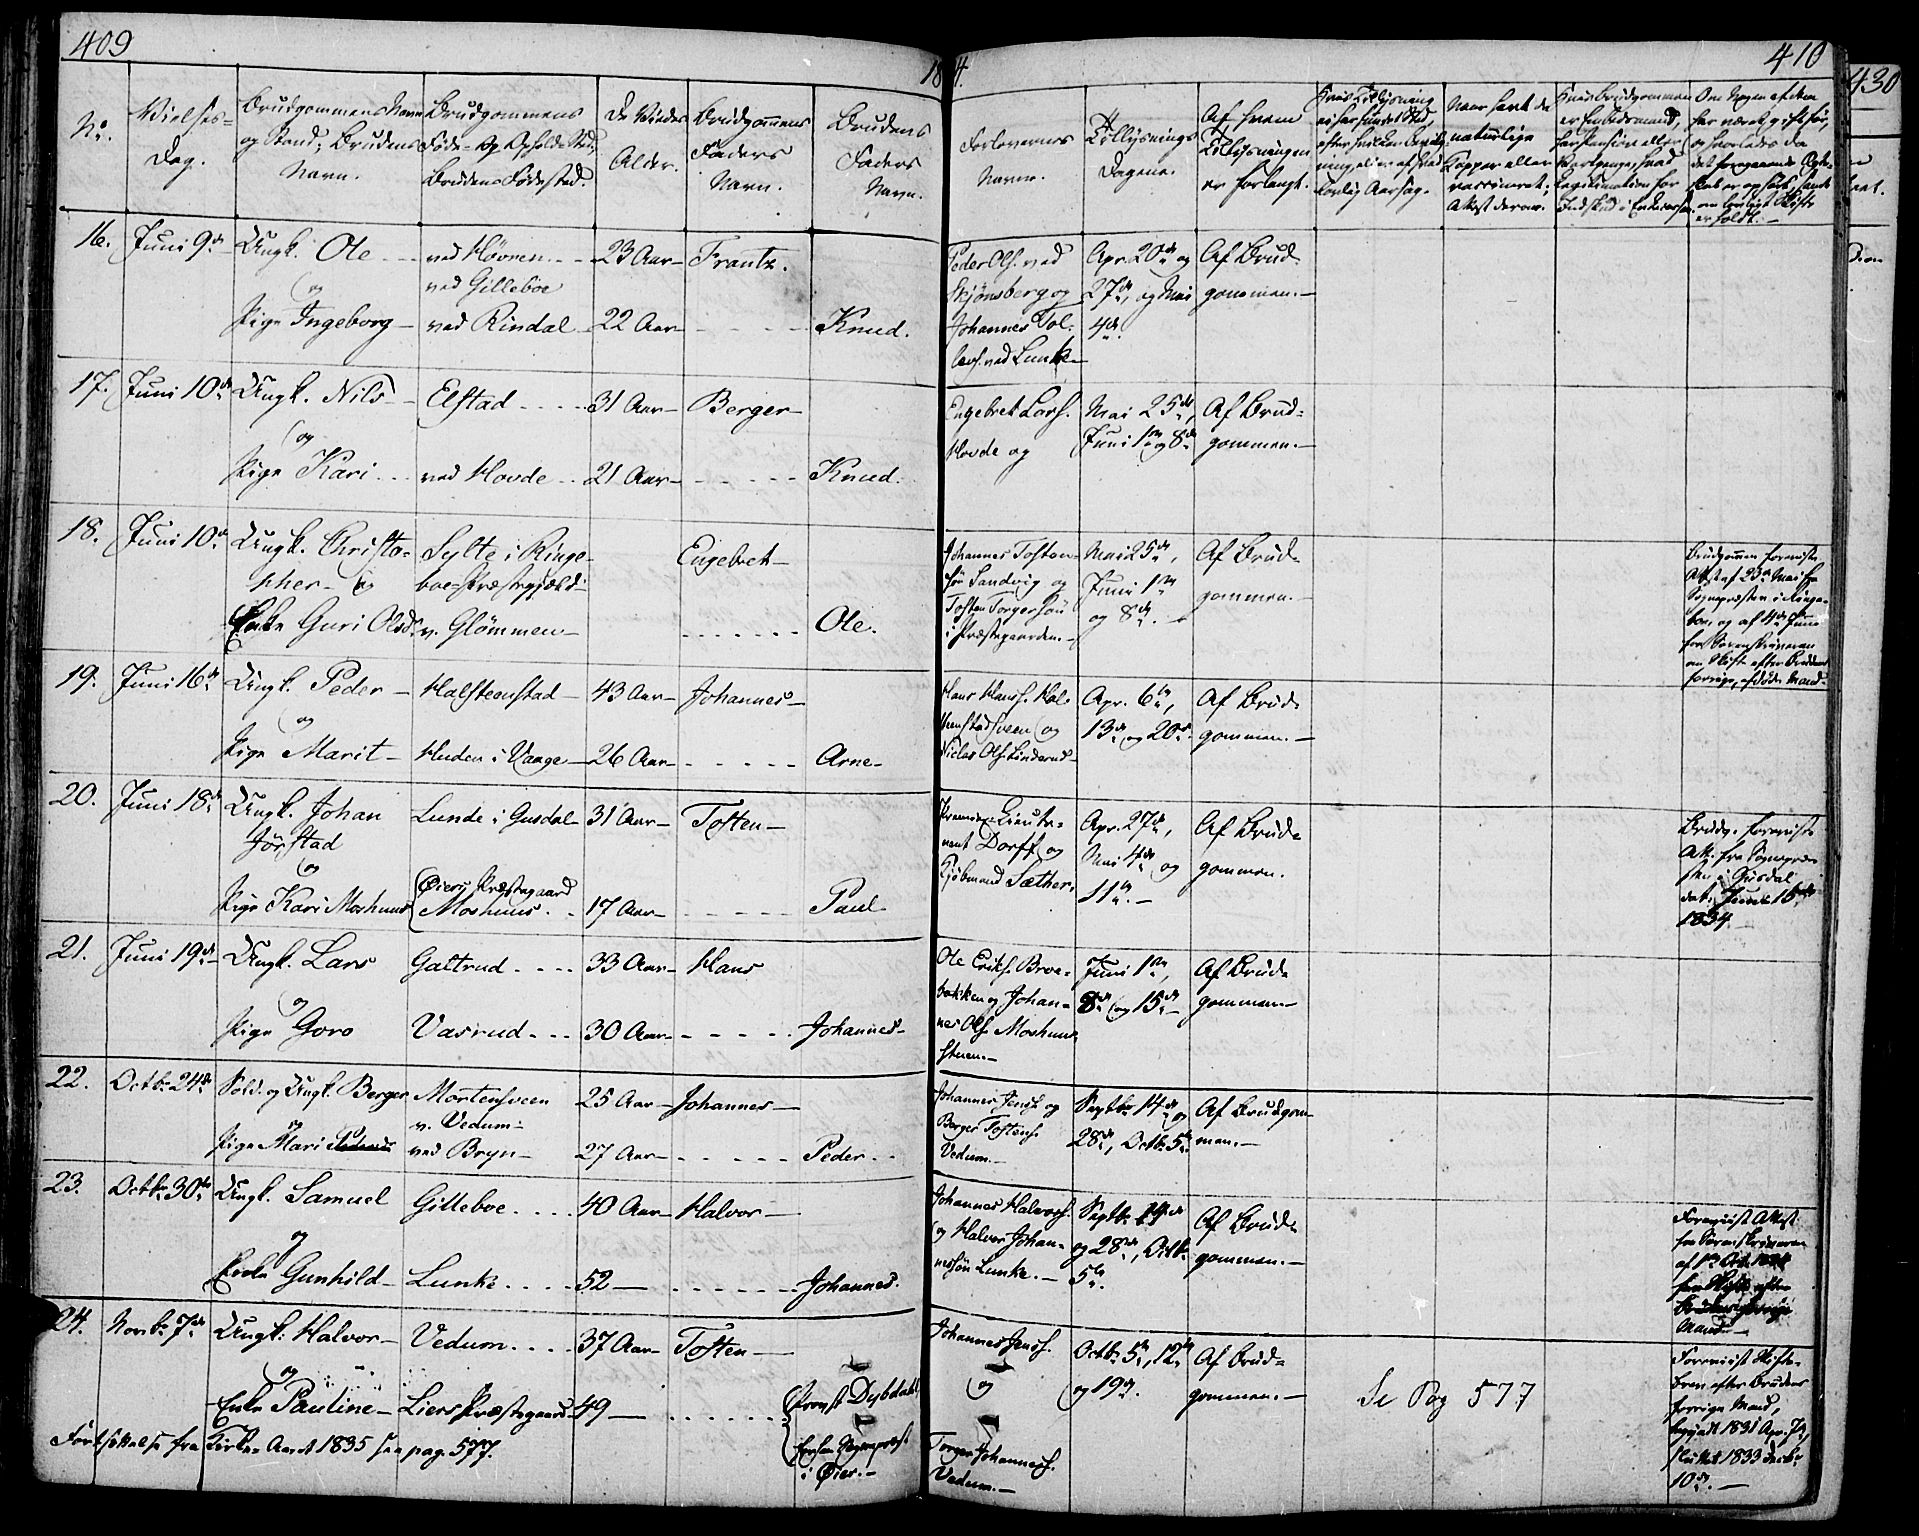 409
18
4.
410
430
No.
Vielses-
Dag.
Brudgommens Navn
og Stand; Brudens
Navn.
Brudgommens
Føde- og Opholds Sted;
Brudens Fødested.
De Viedes
Alder.
Brudgommens
Faders
Navn.
Brudens
Faders
Navn.
Forlovernes
Navne.
Tillysnings
Dagene.
Af hvem
Tillysningen
er forlangt.
16.
Juni 9de
Ungk. Ole
og
Pige Ingeborg
ved Hövren
ved Gilleboe
ved Rindal
23 Aar
22 Aar
Frantz.
Knud.
Peder Ols. ved
Skjönsberg og
Johannes Tol-
levs. ved Lunke
Apr. 20de og
27de, og Mai
4de.
Af Brud-
gommen.
17.
Juni 10de
Ungk. Nils
og
Pige Kari
Elstad
ved Hovde
31 Aar
21 Aar
Berger
Knud.
Engebret Lars.
Hovde og
Mai 25de,
Juni 1ste og 8de
Af Brud-
gommen.
18.
Juni 10de
Ungk. Christo-
pher og
Enke Guri Olsd.
Sylte i Ringe-
boe Præstegjæld
v. Glömmen
Engebret
Ole.
Johannes Tosten-
sön Sandvig og
Tosten Torgersön
i Præstegaarden.
Mai 25de,
Juni 1ste
og 8de.
Af Brud-
gommen.
Brudgommen foreviste
Attest af 23de Mai fra
Sognepræsten i Ringe-
boe, og af 4de Juni
fra Sorenskriveren
om Skifte efter Brudens
forrige, afdøde Mand.
19.
Juni 16de
Ungk. Peder
og
Pige Marit
Halsteenstad
Huden i Vaage
43 Aar
26 Aar
Johannes
Arne
Hans Hans. Hal-
steenstadsveen og
Niclas Ols. Linderud
Apr. 6te,
13de og 20de
Af Brud-
gommen.
20.
Juni 18de
Ungk. Johan
Jörstad
og
Pige Kari Moshuus
Lunde i Gusdal
Øiers Præstegaard
Moshuus.
31 Aar
17 Aar
Tosten
Paul
Premier-Lieute-
nant Dorff og
Kjöbmand Sæther.
Apr. 27de,
Mai 4de og
11te.
Af Brud-
gommen.
Brudg. foreviste
Att. fra Sognepræ-
sten i Gusdal
dat. Juni 16de
1834.
21.
Juni 19de
Ungk. Lars
og
Pige Goro
Galtrud
Vasrud
33 Aar
30 Aar
Hans
Johannes
Ole Eriks. Broe-
bakken og Johan-
nes Ols. Moshuus-
stuen.
Juni 1ste,
8de og 15de
Af Brud-
gommen
22.
Octb. 24de
Sold. og Ungk. Berger
og
Pige Mari
Mortensveen
v. Vedum
ved Bryn
25 Aar
27 Aar
Johannes
Peder
Johannes Jens. og
Berger Tostens.
Vedum.
Septbr. 14de og
28de, Octb. 5te
Af Brudgom-
men.
23.
Octbr. 30te
Ungk. Samuel
og
Enke Gunhild
Gilleboe
Lunke
40 Aar
52
Halvor
Johannes.
Johannes Halvors.
og Halvor Johan-
nessön Lunke.
Septbr.
og 28de, Octb.
5te.
Af Brud-
gommen.
Foreviist Attest
fra Sorenskriveren
af 1ste Oct. 1834
for Skifte efter
Brudens forrige
Mand.
24.
Novbr. 7de
Ungk. Halvor
og
Enke Pauline
Vedum
Liers Præstegaard
37 Aar
49
Tosten
Provst Dybdahl,
Sognepræst
i Øier.
Johannes Jens.
og
Torger Johannes.
Vedum.
Octb. 5te, 12te
og 19de.
Af Brud-
gommen.
Se Pag 577
Foreviist Skifte-
brev efter Brudens
forrige Mand,
begyndt 1831 Apr. 7de,
sluttet 1833 Decbr.
10de.
Fortsættelse fra Kirke-Aaret 1835 see pag. 577.